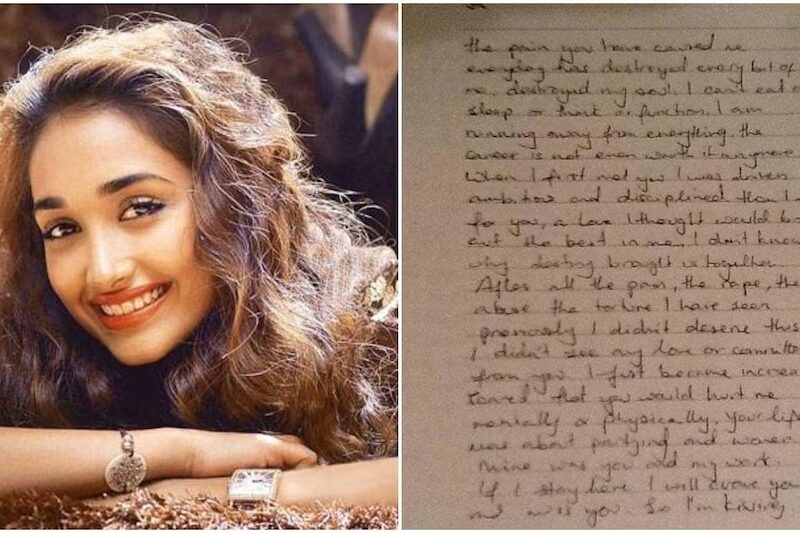 the pain you have caused me
everyday has destroyed every bit of
me, destroyed my soul. I cant eat o
sleep or think or function. I am
running away from everything. the
career is not even worth it anymore
When I first met you I was driven
ambitious and disciplined then I
for you, a love I thought would br
out the best in me. I dont know
why destiny brought us together
After all the pain, the rape, the
abuse the torture I have seen
previously I didn't deserve this
I didn't see any love or commitm
from you. I just became increas
scared that you would hurt me
mentally or physically. Your life
was about partying and women.
mine was you and my work.
If I stay here I will crave you
and miss you. So I'm kissing